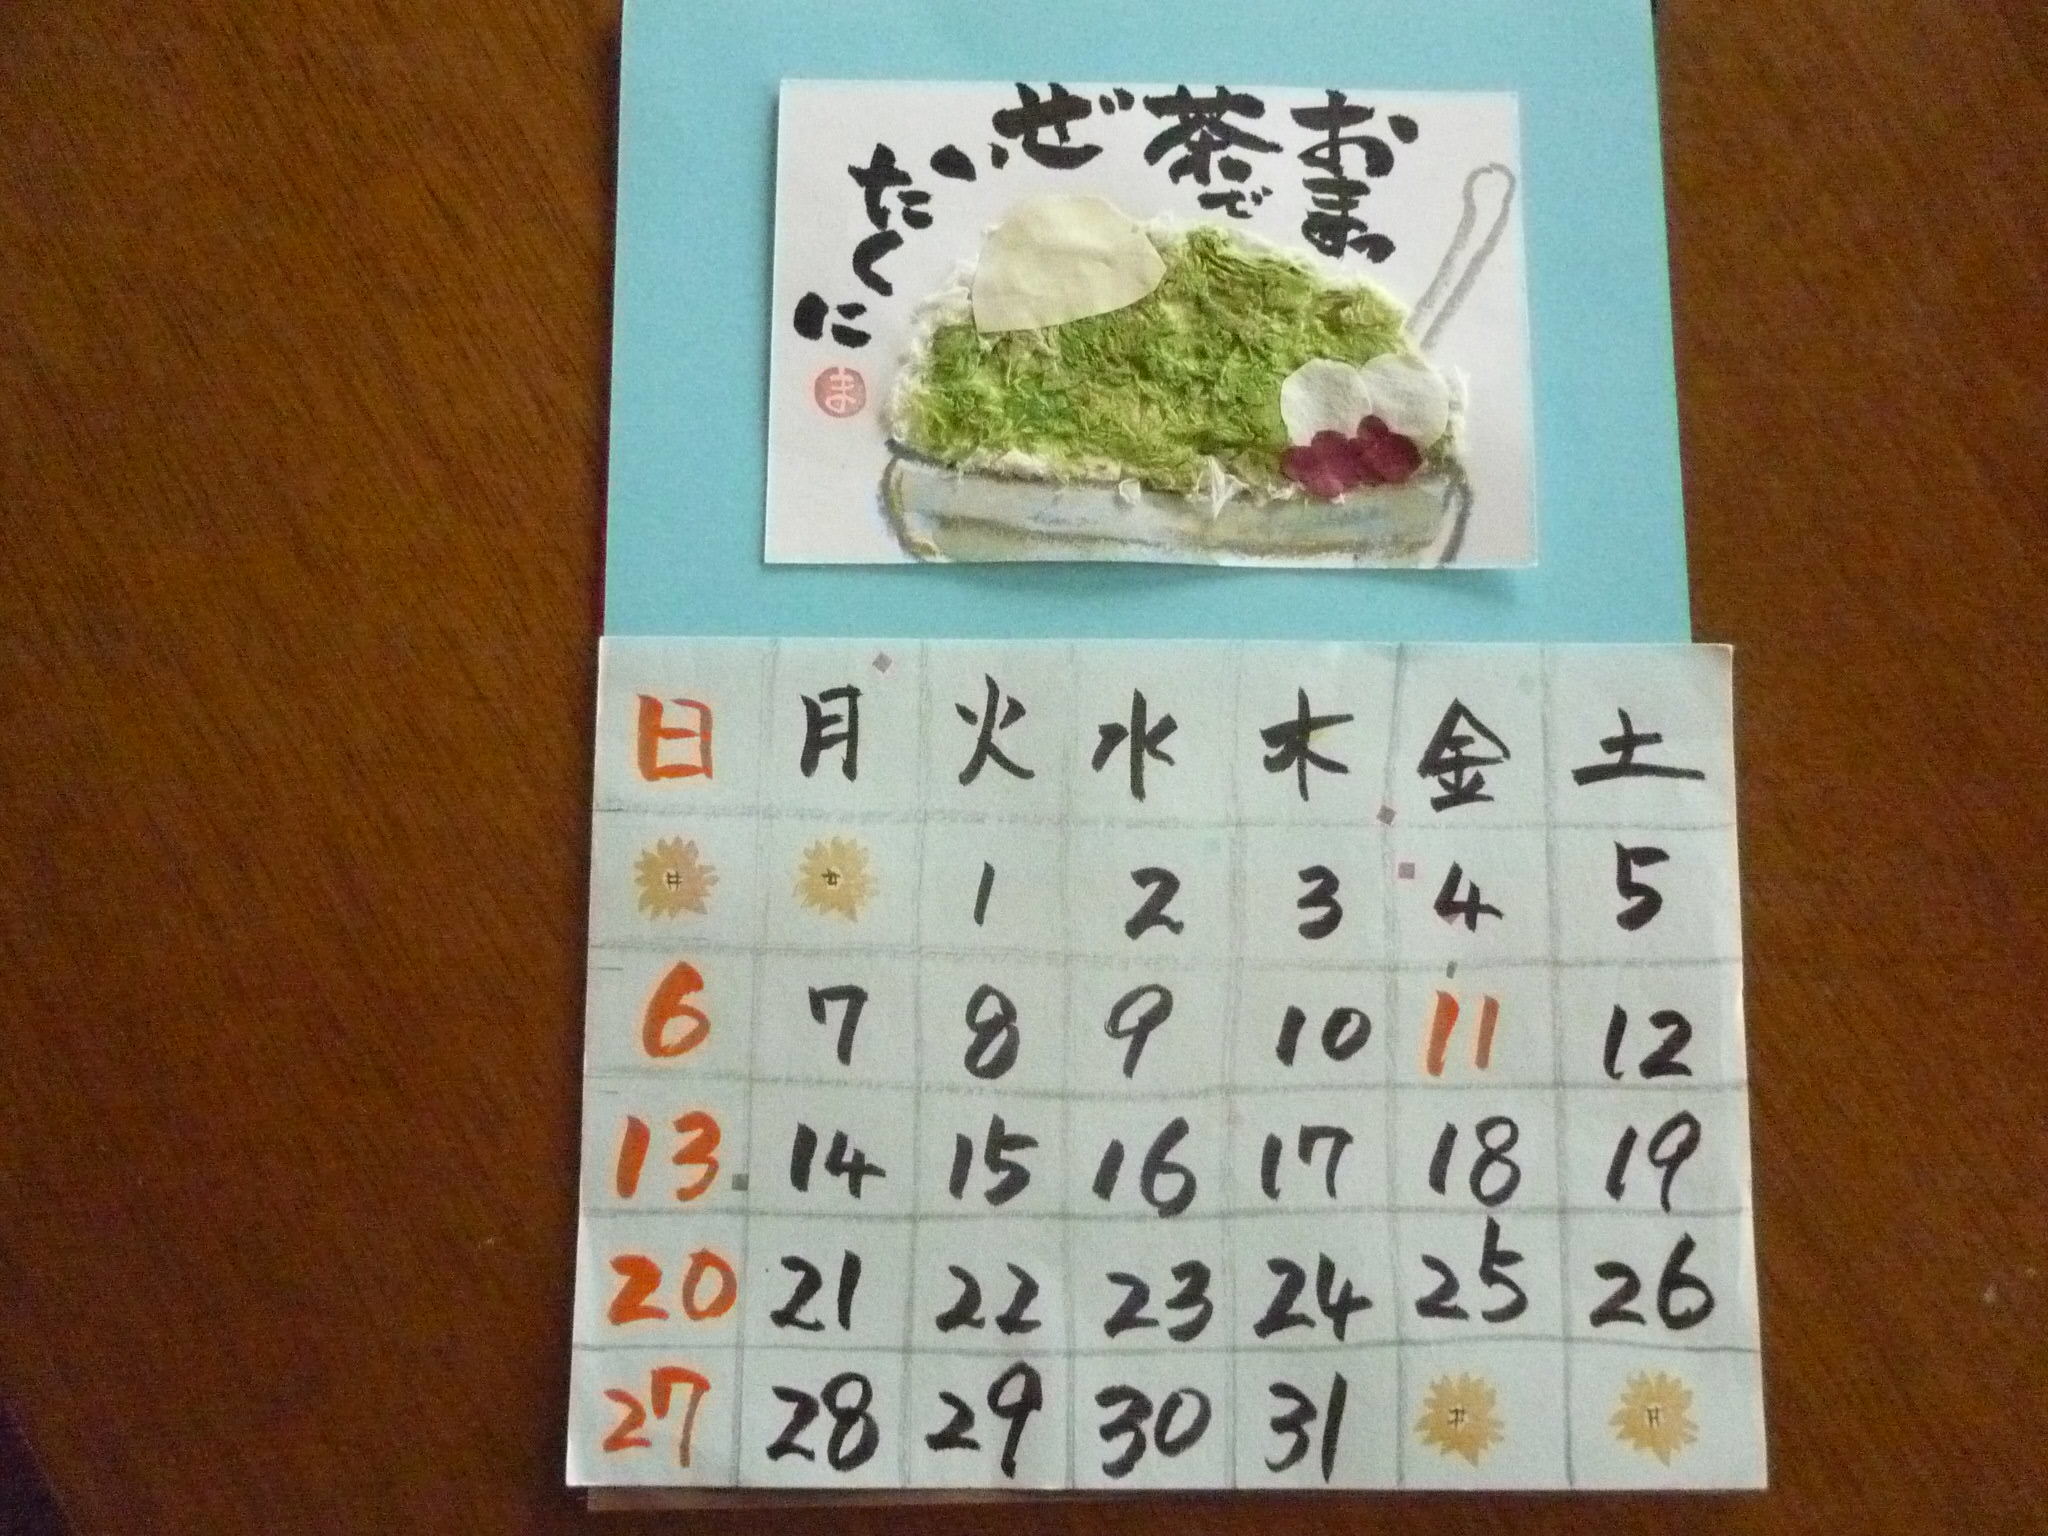 おまっ
茶で
ぜ
いたくに
ま
日 月 火 水 木 金 土
1 2 3 4 5
6 7 8 9 10 11 12
13 14 15 16 17 18 19
20 21 22 23 24 25 26
27 28 29 30 31